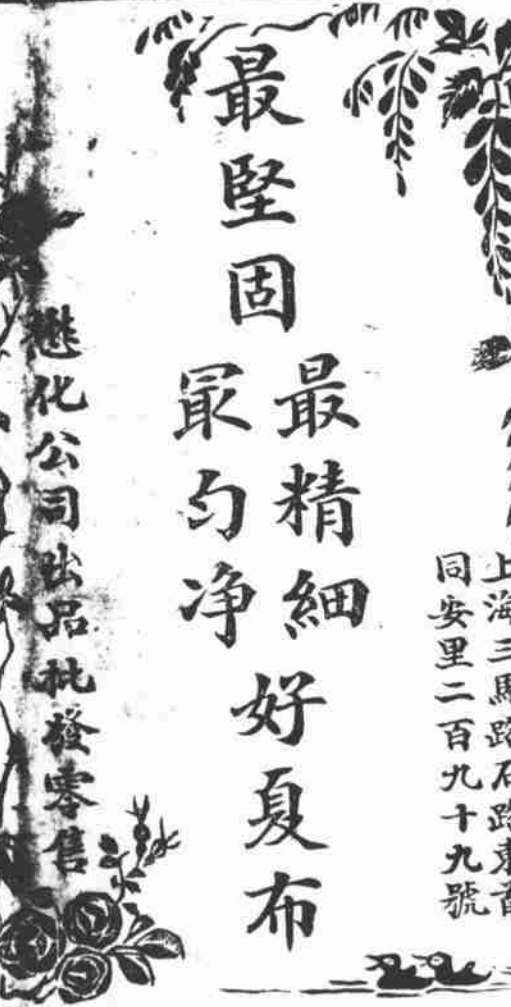 上海三馬路石路東首
同安里二百九十九號
最堅固
最精細
最匀净
好夏布
懋化公司出品批發零售